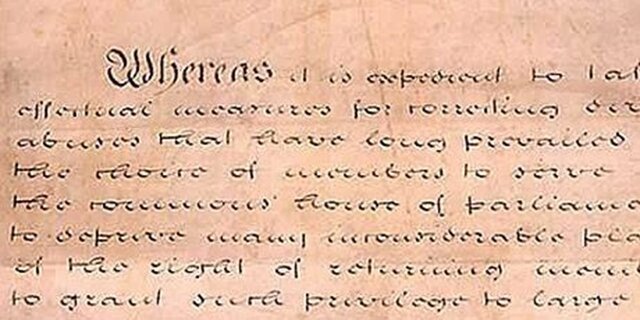 Whereas it is expedient to ta
effectual measures for correcting
abuses that have long prevailed
the choice of members to serve
the commons house of parliame
to deprive many inconsiderable pla
of the right of returning mem
to grant such privilege to large